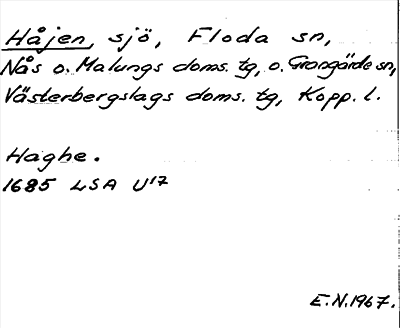 Håjen, sjö, Floda sn,
Nås o. Malungs doms. tg, o. Grangärde sn,
Västerbergslags doms. tg, Kopp. l.
Haghe.
1685 LSA U17
E.N.1967.